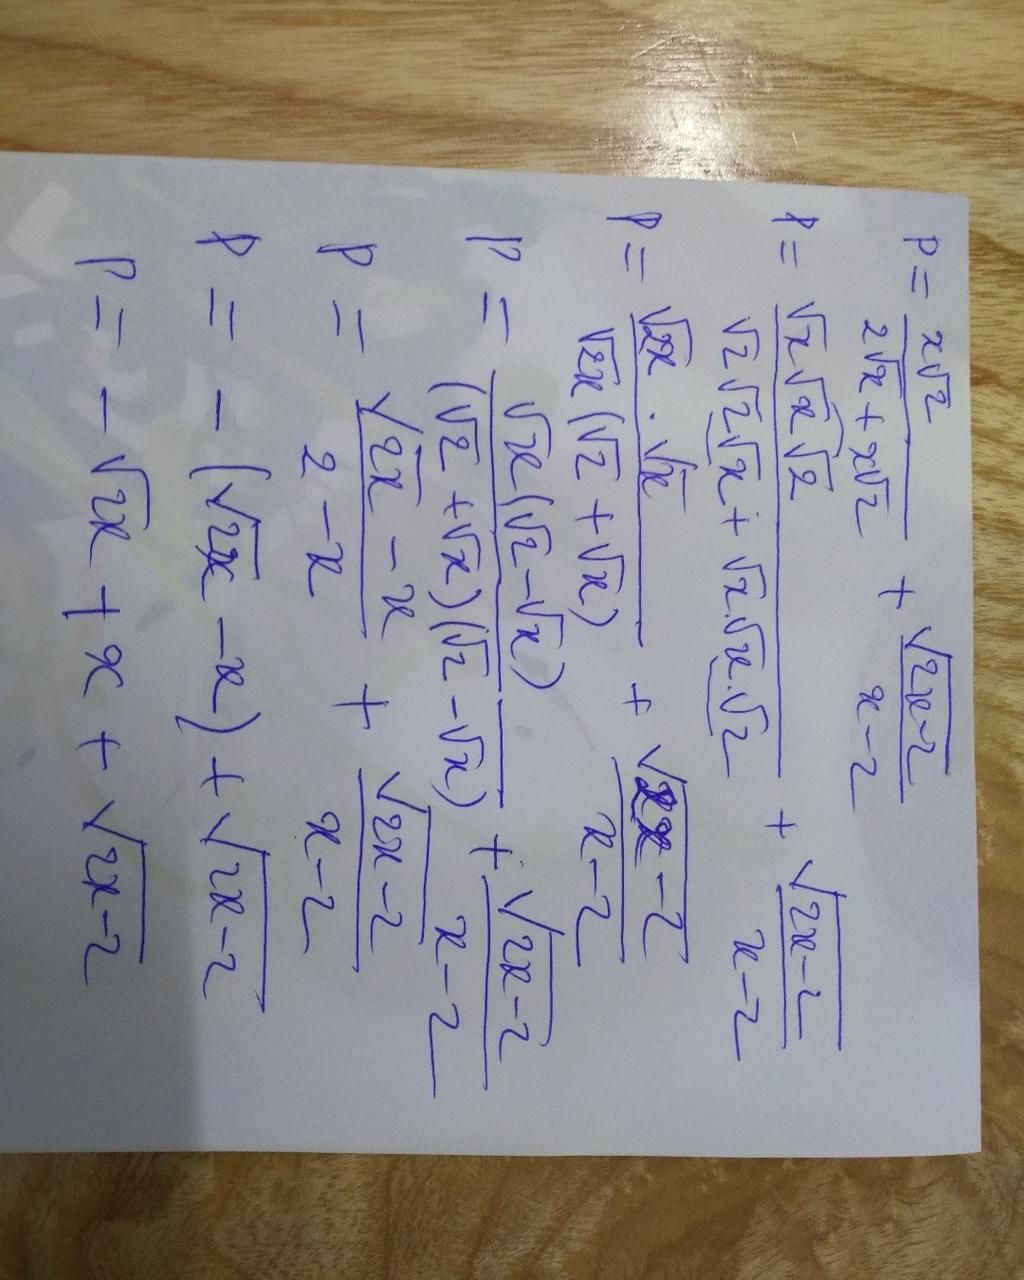 P = x√2 / (2√x + x√2) + √(2x-2) / (x-2)
P = √x√x√2 / (√2√2√x + √x.√x.√2) + √(2x-2) / (x-2)
P = √(2x) . √x / (√(2x) (√2 + √x)) + √(2x-2) / (x-2)
P = √x (√2 - √x) / ((√2 + √x) (√2 - √x)) + √(2x-2) / (x-2)
P = (√(2x) - x) / (2 - x) + √(2x-2) / (x-2)
P = - (√(2x) - x) + √(2x-2)
P = - √(2x) + x + √(2x-2)